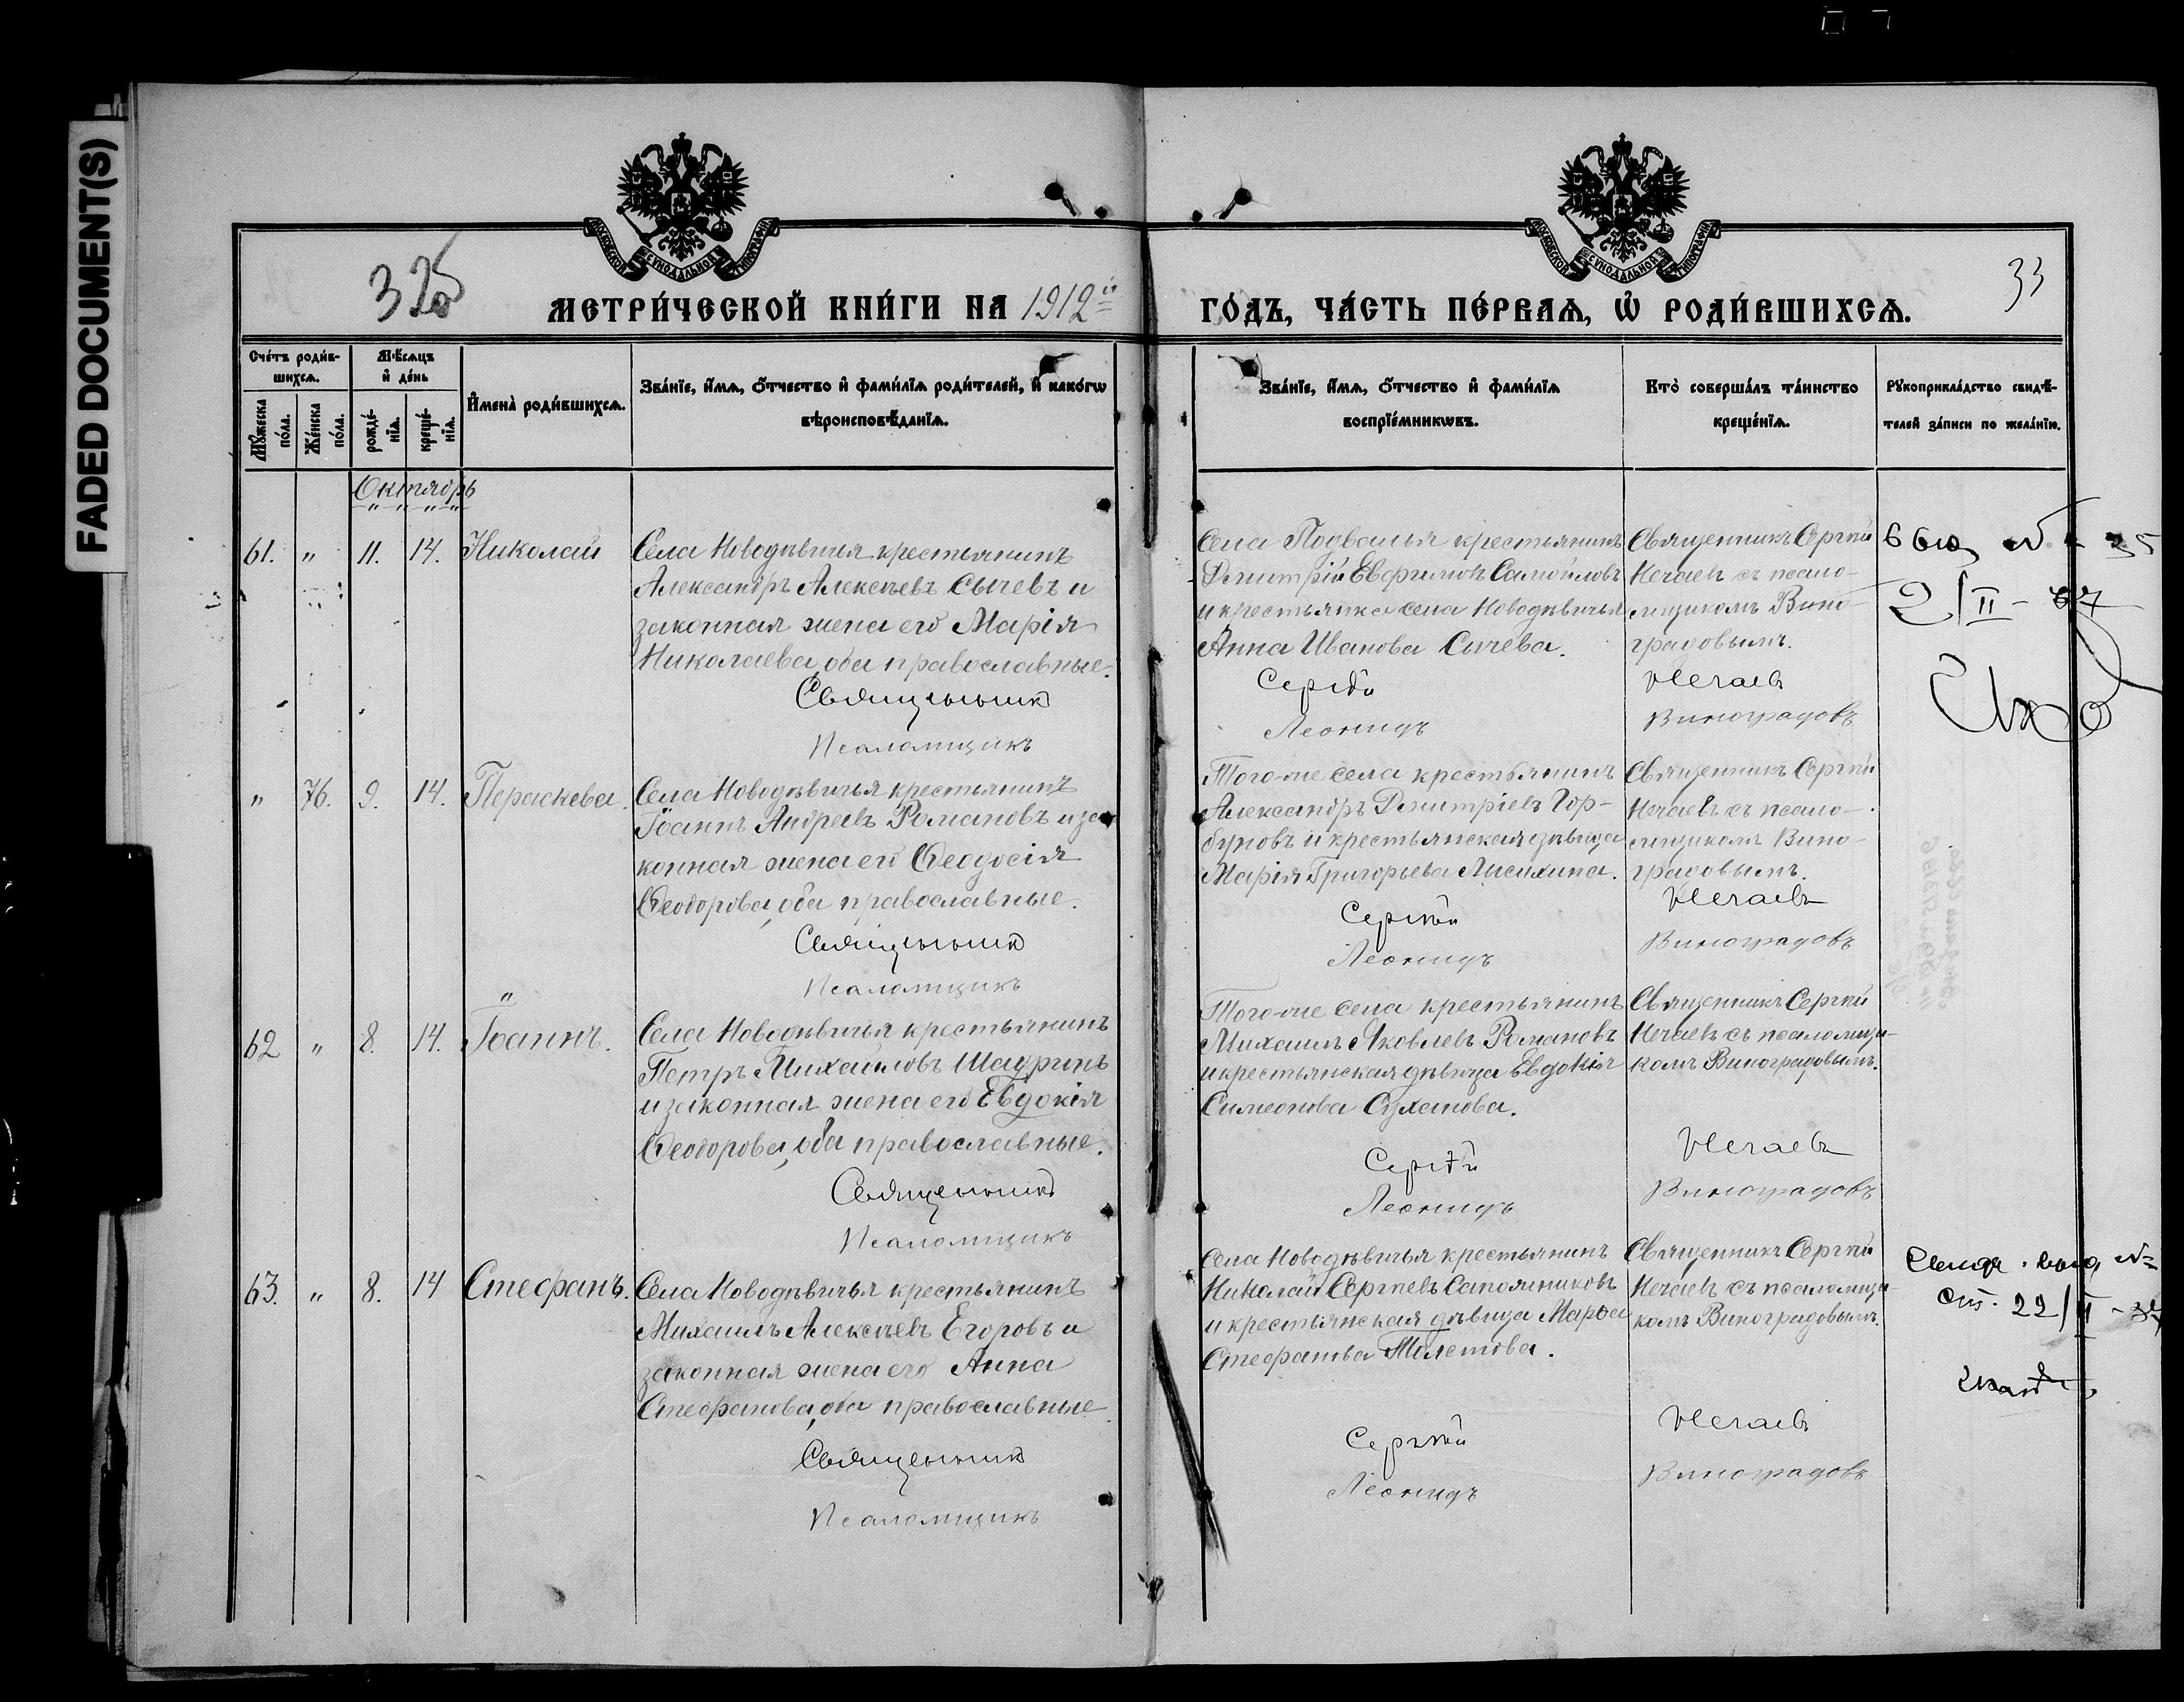 FADED DOCUMENT(S)
МОСКОВСКОЙ СѴНОДАЛЬНОЙ ТИПОГРАФІИ
МОСКОВСКОЙ СѴНОДАЛЬНОЙ ТИПОГРАФІИ
325
33
МЕТРИ́ЧЕСКОЙ КНИ́ГИ НА 1912й
ГО́ДЪ, ЧА́СТЬ ПЕ́РВАѦ, Ѡ҆ РОДИ́ВШИХСѦ.
Сче́тъ роди́в-
шихсѧ.
Мꙋ́жеска по́ла.
Же́нска по́ла.
Мѣ́сѧцъ
и҆ де́нь
рожде́-нїѧ.
креще́-нїѧ.
И҆мена̀ роди́вшихсѧ.
Зва́нїе, и҆́мѧ, ѻ҆́тчество и҆ фами́лїѧ роди́телей, и҆ како́гѡ
вѣроисповѣ́данїѧ.
Зва́нїе, и҆́мѧ, ѻ҆́тчество и҆ фами́лїѧ
воспрїе́мникѡвъ.
Кто̀ соверша́лъ та́инство
креще́нїѧ.
Рꙋкоприкла́дство свидѣ́-
телей за́писи по жела́нїю.
Октябрь
61. " 11. 14. Николай
Села Новодѣвичья крестьянинъ
Александръ Алексѣевъ Сычевъ и
законная жена его Марія
Николаева, оба православные.
Священникъ
Псаломщикъ
Села Подвалья крестьянинъ
Димитрій Евфимовъ Самойловъ
и крестьянка села Новодѣвичья
Анна Иванова Сычева.
Сергѣй
Леонидъ
Священникъ Сергѣй
Нечаевъ съ псало-
мщикомъ Вино-
градовымъ.
Нечаевъ
Виноградовъ
2/II - 37
" 76. 9. 14. Параскева.
Села Новодѣвичья крестьянинъ
Іоаннъ Андреевъ Романовъ и за-
конная жена его Ѳеодосія
Ѳеодорова, оба православные.
Священникъ
Псаломщикъ
Того-же села крестьянинъ
Александръ Димитріевъ Гор-
буновъ и крестьянская дѣвица
Марія Григорьева Лисихина.
Сергѣй
Леонидъ
Священникъ Сергѣй
Нечаевъ съ псало-
мщикомъ Вино-
градовымъ.
Нечаевъ
Виноградовъ
"
62 " 8. 14. Іоаннъ.
Села Новодѣвичья крестьянинъ
Петръ Михайловъ Шадринъ
и законная жена его Евдокія
Ѳеодорова, оба православные.
Священникъ
Псаломщикъ
Того-же села крестьянинъ
Михаилъ Яковлевъ Романовъ
и крестьянская дѣвица Евдокія
Симеонова Суханова.
Сергѣй
Леонидъ
Священникъ Сергѣй
Нечаевъ съ псаломщи-
комъ Виноградовымъ.
Нечаевъ
Виноградовъ
63. " 8. 14 Стефанъ.
Села Новодѣвичья крестьянинъ
Михаилъ Алексѣевъ Егоровъ и
законная жена его Анна
Стефанова, оба православные.
Священникъ
Псаломщикъ
Села Новодѣвичья крестьянинъ
Николай Сергѣевъ Сапожниковъ
и крестьянская дѣвица Марѳа
Стефанова
Сергѣй
Леонидъ
Священникъ Сергѣй
Нечаевъ съ псаломщи-
комъ Виноградовымъ.
Нечаевъ
Виноградовъ
22/II - 37